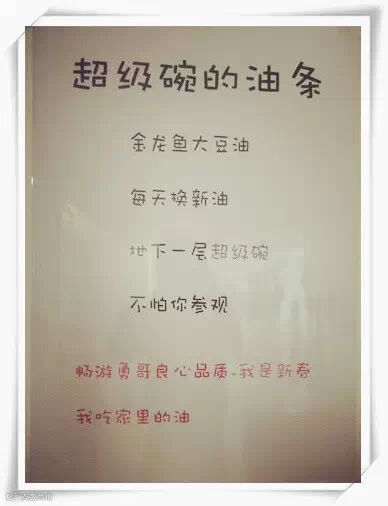 超级碗的油条
金龙鱼大豆油
每天换新油
地下一层超级碗
不怕你参观
畅游勇哥良心品质-我是新春
我吃家里的油